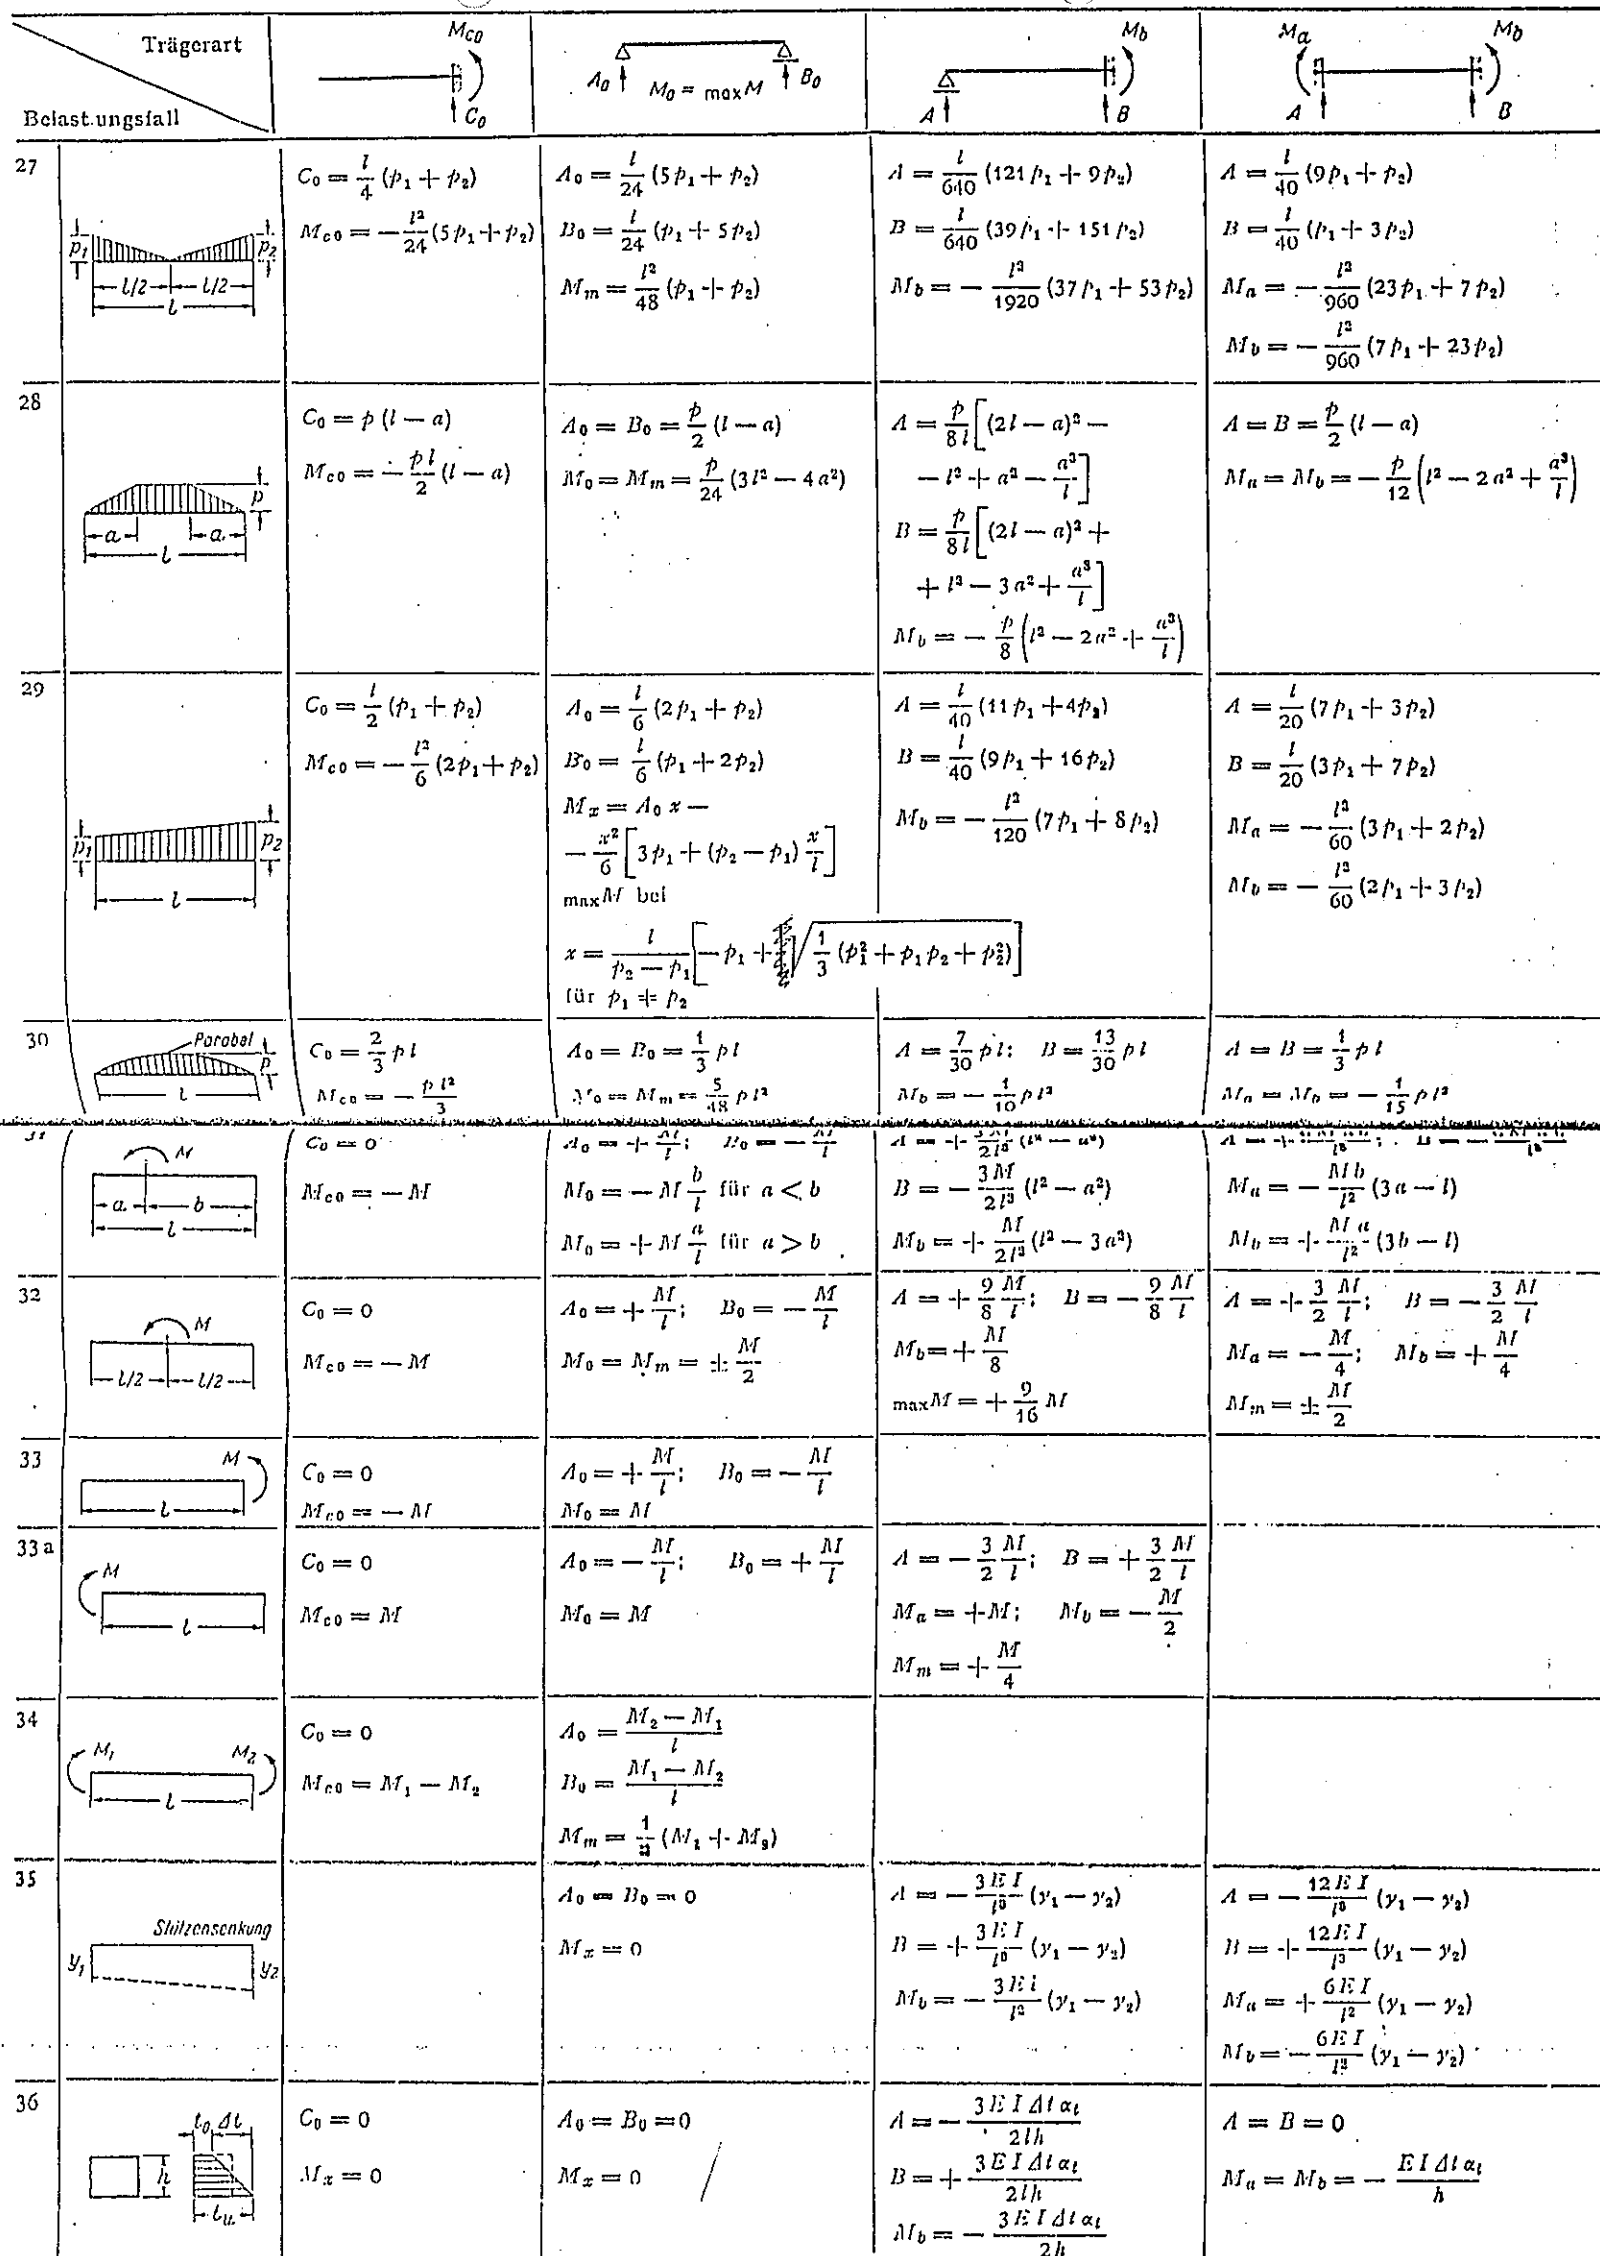 Trägerart
Belastungsfall
M_c0
C_0
A_0 M_0 = max M B_0
M_b
A B
M_a M_b
A B
27
p_1 p_2
l/2 l/2
l
C_0 = l/4 (p_1 + p_2)
M_c0 = − l²/24 (5p_1 + p_2)
A_0 = l/24 (5p_1 + p_2)
B_0 = l/24 (p_1 + 5p_2)
M_m = l²/48 (p_1 + p_2)
A = l/640 (121p_1 + 9p_2)
B = l/640 (39p_1 + 151p_2)
M_b = − l²/1920 (37p_1 + 53p_2)
A = l/40 (9p_1 + p_2)
B = l/40 (p_1 + 3p_2)
M_a = − l²/960 (23p_1 + 7p_2)
M_b = − l²/960 (7p_1 + 23p_2)
28
p
a a
l
C_0 = p (l − a)
M_c0 = − pl/2 (l − a)
A_0 = B_0 = p/2 (l − a)
M_0 = M_m = p/24 (3l² − 4a²)
A = p/8l [(2l − a)² −
− l² + a² − a³/l]
B = p/8l [(2l − a)² +
+ l² − 3a² + a³/l]
M_b = − p/8 (l² − 2a² + a³/l)
A = B = p/2 (l − a)
M_a = M_b = − p/12 (l² − 2a² + a³/l)
29
p_1 p_2
l
C_0 = l/2 (p_1 + p_2)
M_c0 = − l²/6 (2p_1 + p_2)
A_0 = l/6 (2p_1 + p_2)
B_0 = l/6 (p_1 + 2p_2)
M_x = A_0 x −
− x²/6 [3p_1 + (p_2 − p_1) x/l]
max M bei
x = l/(p_2 − p_1) [− p_1 + √(1/3 (p_1² + p_1 p_2 + p_2²))]
für p_1 ≠ p_2
A = l/40 (11p_1 + 4p_2)
B = l/40 (9p_1 + 16p_2)
M_b = − l²/120 (7p_1 + 8p_2)
A = l/20 (7p_1 + 3p_2)
B = l/20 (3p_1 + 7p_2)
M_a = − l²/60 (3p_1 + 2p_2)
M_b = − l²/60 (2p_1 + 3p_2)
30
Parabel
p
l
C_0 = 2/3 pl
M_c0 = − pl²/3
A_0 = B_0 = 1/3 pl
M_0 = M_m = 5/48 pl²
A = 7/30 pl; B = 13/30 pl
M_b = − 1/10 pl²
A = B = 1/3 pl
M_a = M_b = − 1/15 pl²
31
M
a b
l
C_0 = 0
M_c0 = − M
A_0 = + M/l; B_0 = − M/l
M_0 = − M b/l für a < b
M_0 = + M a/l für a > b
A = + 3M/2l³ (l² − a²)
B = − 3M/2l³ (l² − a²)
M_b = + M/2l² (l² − 3a²)
M_a = − Mb/l² (3a − l)
M_b = + Ma/l² (3b − l)
32
M
l/2 l/2
C_0 = 0
M_c0 = − M
A_0 = + M/l; B_0 = − M/l
M_0 = M_m = ± M/2
A = + 9/8 M/l; B = − 9/8 M/l
M_b = + M/8
max M = + 9/16 M
A = + 3/2 M/l; B = − 3/2 M/l
M_a = − M/4; M_b = + M/4
M_m = ± M/2
33
M
l
C_0 = 0
M_c0 = − M
A_0 = + M/l; B_0 = − M/l
M_0 = M
33a
M
l
C_0 = 0
M_c0 = M
A_0 = − M/l; B_0 = + M/l
M_0 = M
A = − 3/2 M/l; B = + 3/2 M/l
M_a = + M; M_b = − M/2
M_m = + M/4
34
M_1 M_2
l
C_0 = 0
M_c0 = M_1 − M_2
A_0 = (M_2 − M_1)/l
B_0 = (M_1 − M_2)/l
M_m = 1/2 (M_1 + M_2)
35
Stützensenkung
y_1 y_2
A_0 = B_0 = 0
M_x = 0
A = − 3EI/l³ (y_1 − y_2)
B = + 3EI/l³ (y_1 − y_2)
M_b = − 3EI/l² (y_1 − y_2)
A = − 12EI/l³ (y_1 − y_2)
B = + 12EI/l³ (y_1 − y_2)
M_a = + 6EI/l² (y_1 − y_2)
M_b = − 6EI/l² (y_1 − y_2)
36
t_0 Δt
h
t_u
C_0 = 0
M_x = 0
A_0 = B_0 = 0
M_x = 0
A = − 3EIΔtα_t/2lh
B = + 3EIΔtα_t/2lh
M_b = − 3EIΔtα_t/2h
A = B = 0
M_a = M_b = − EIΔtα_t/h